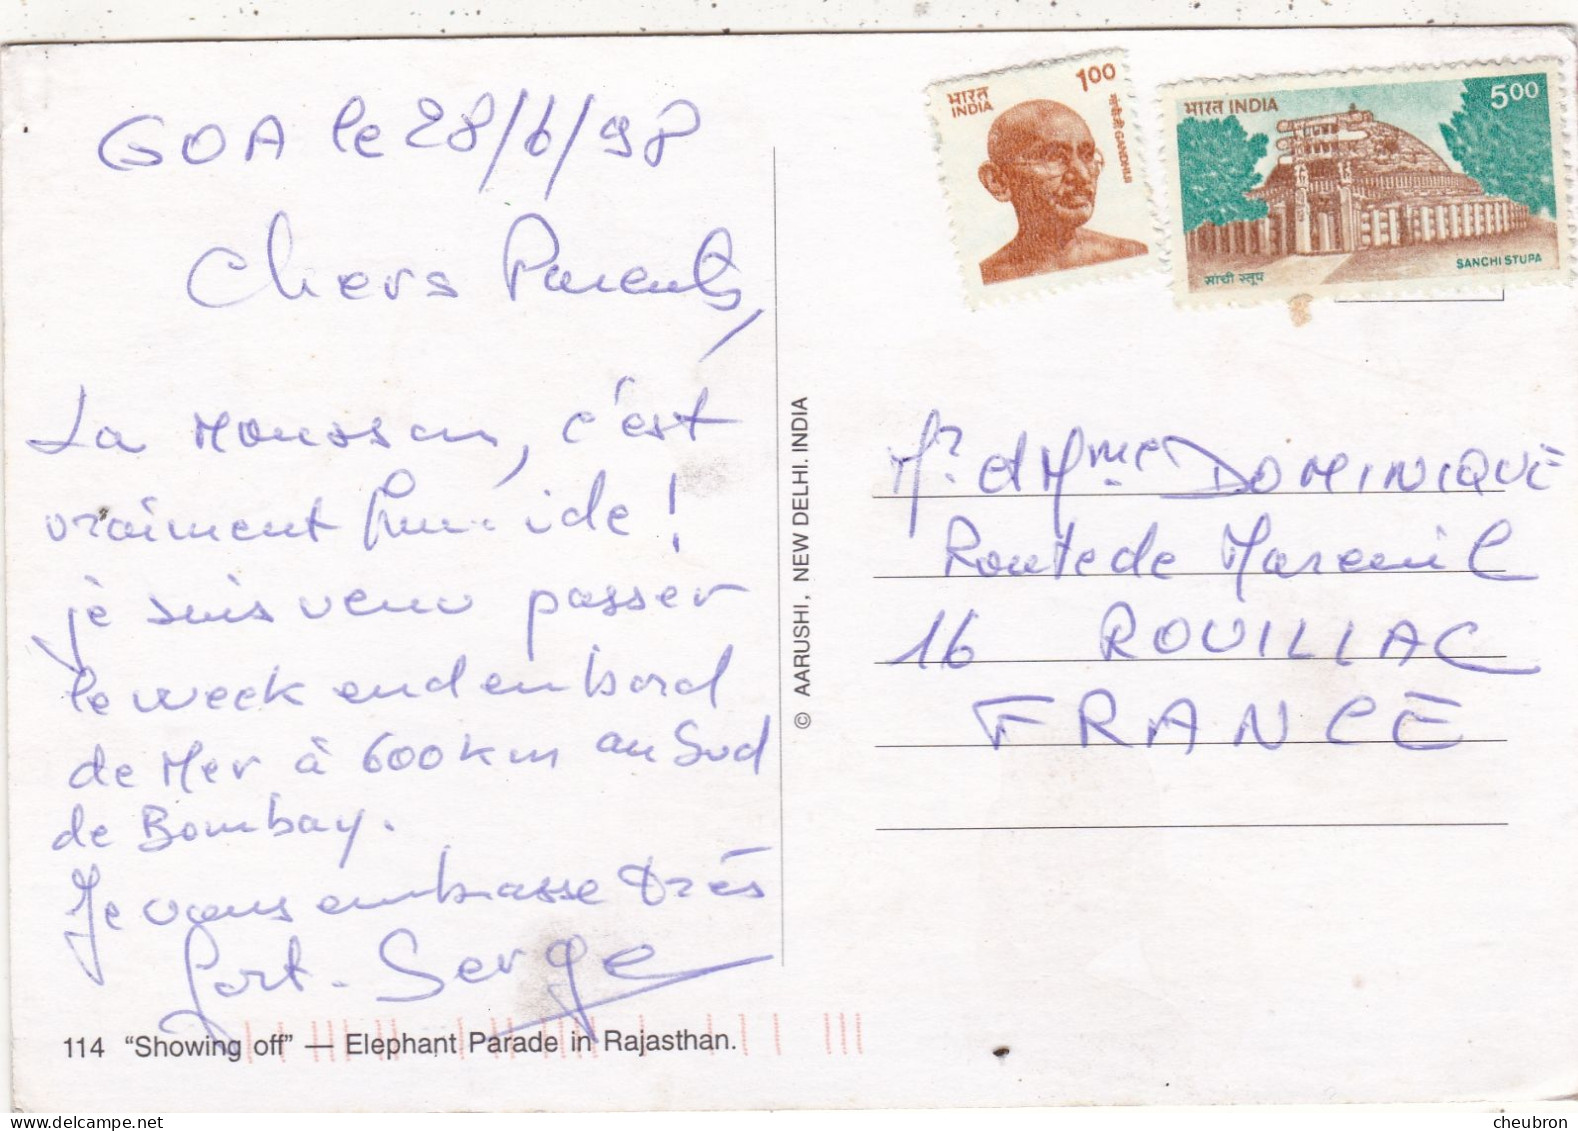 GOA le 28/6/98
Chers Parents,
La Mousson, c'est
vraiment humide !
je suis venu passer
le week end en bord
de Mer à 600 km au Sud
de Bombay.
Je vous embrasse très
fort. Serge
114 "Showing off" — Elephant Parade in Rajasthan.
© AARUSHI, NEW DELHI. INDIA
भारत
INDIA
100
गांधीजी GANDHIJI
भारत INDIA
500
SANCHI STUPA
सांची स्तूप
Mr et Mme DOMINIQUE
Route de Mareuil
16 ROUILLAC
FRANCE
cheubron